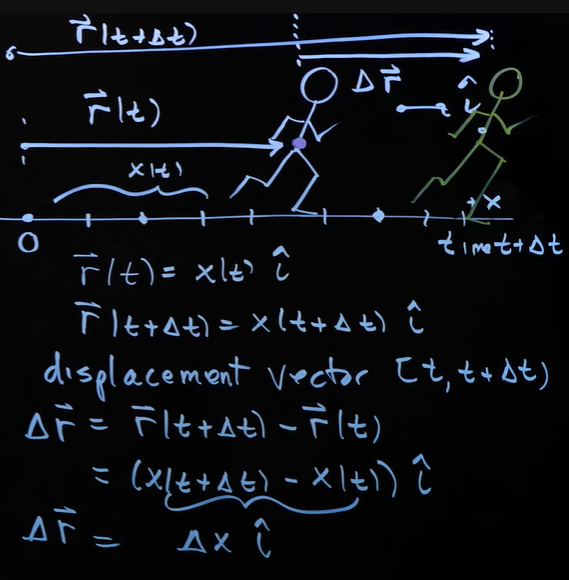 r⃗(t+Δt)
Δr⃗
î
r⃗(t)
x(t)
+x
O
time t+Δt
r⃗(t) = x(t) î
r⃗(t+Δt) = x(t+Δt) î
displacement vector [t, t+Δt)
Δr⃗ = r⃗(t+Δt) - r⃗(t)
= (x(t+Δt) - x(t)) î
Δr⃗ = Δx î